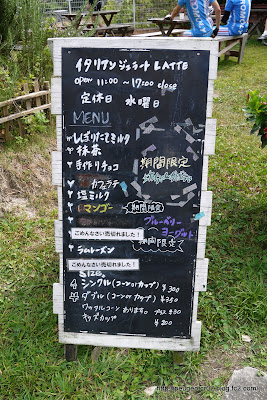 イタリアン ジェラート LATTE
open 11:00 ~ 17:00 close
定休日 水曜日
MENU
しぼりたてミルク
抹茶
手作りチョコ
期間限定
カフェラテ
塩ミルク
マンゴー 期間限定
ブルーベリー
ヨーグルト
ごめんなさい売切れました!
期間限定
ラムレーズン
ごめんなさい売切れました!
シングル (コーン or カップ) ¥300
ダブル (コーン or カップ) ¥350
ワッフルコーン あります。 プラス ¥50
キッズカップ ¥200